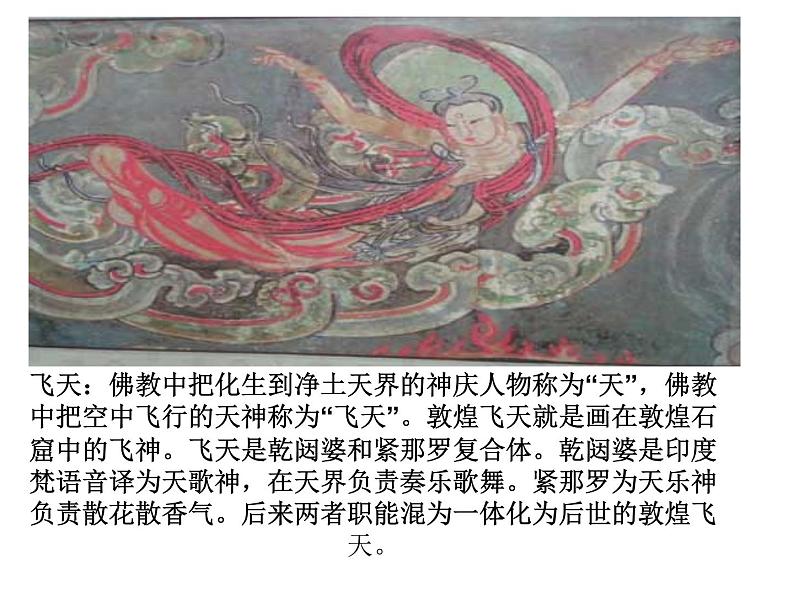 飞天：佛教中把化生到净土天界的神庆人物称为“天”，佛教
中把空中飞行的天神称为“飞天”。敦煌飞天就是画在敦煌石
窟中的飞神。飞天是乾闼婆和紧那罗复合体。乾闼婆是印度
梵语音译为天歌神，在天界负责奏乐歌舞。紧那罗为天乐神
负责散花散香气。后来两者职能混为一体化为后世的敦煌飞
天。